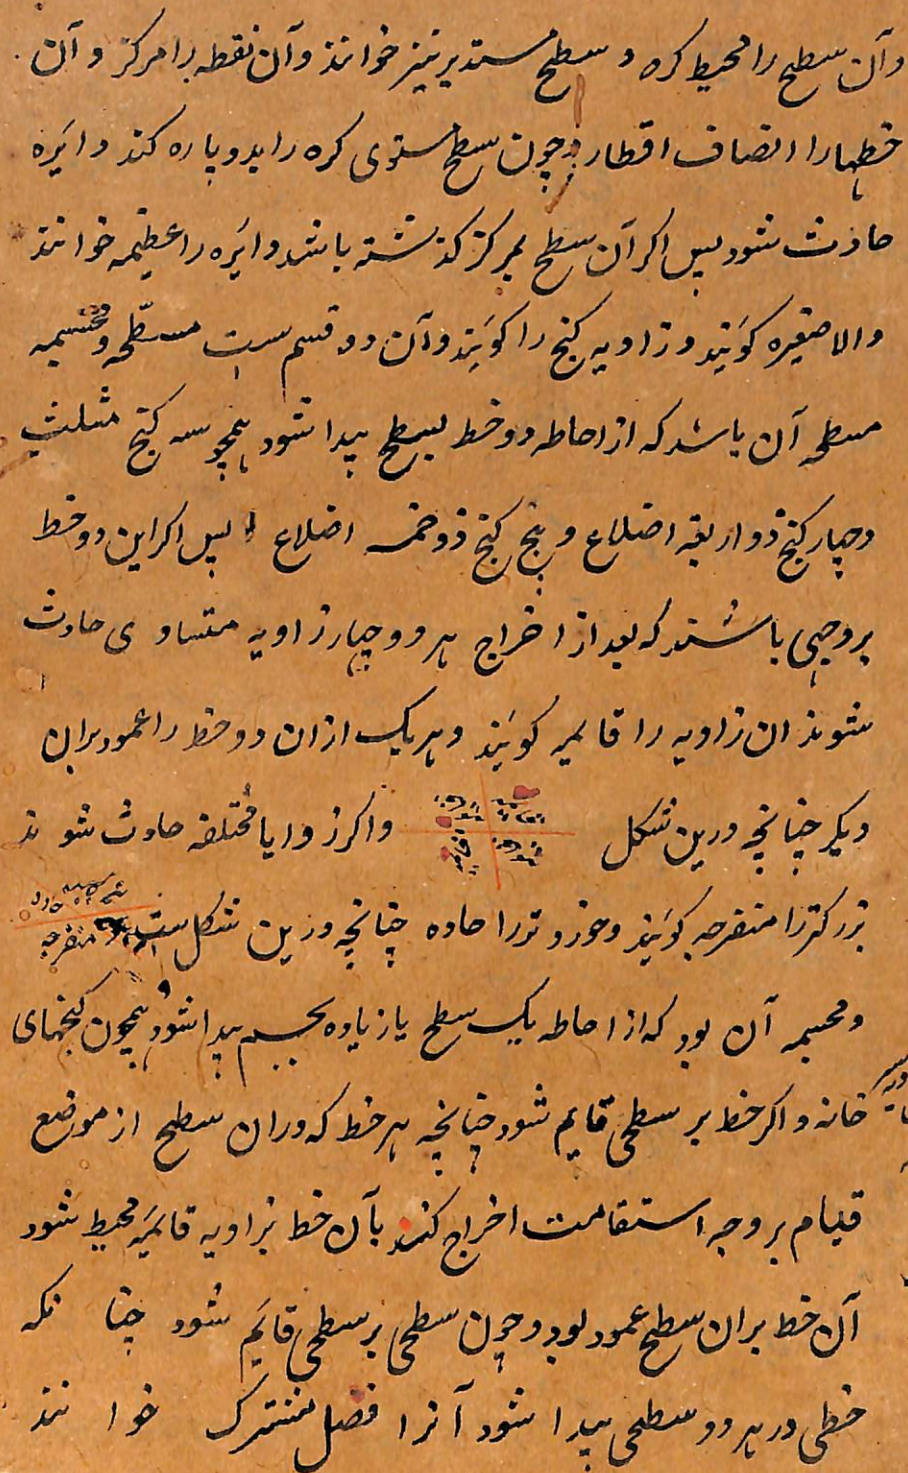 وآن سطح را محیط کره و سطح مستدیر نیز خوانند وآن نقطه را مرکز و آن
خطها را انصاف اقطار و چون سطح مستوی کره را بدو پاره کند دایره
حادث شود پس اکر آن سطح بمرکز کذشته باشد دایره را عظیمه خوانند
والا صغیره کویند و زاویه کنج را کویند وآن دو قسم ست مسطحه و مجسمه
مسطحه آن باشد که از احاطه دو خط بسطح پیدا شود همچو سه کنج مثلث
و چهار کنج ذو اربعه اضلاع و پنج کنج ذو خمسه اضلاع پس اکر این دو خط
بر وجهی باشند که بعد از اخراج هر دو چهار زاویه متساوی حادث
شوند ان زاویه را قایمه کویند و هر یک ازان دو خط را عمود بران
دیکر چنانچه درین شکل
قایمه
قایمه
قایمه
قایمه
واکر زوایا مختلفه حادث شوند
بزرکتر را منفرجه کویند و خوردتر را حاده چنانچه درین شکل ست
منفرجه حاده
منفرجه
ومجسمه آن بود که از احاطه یک سطح یا زیاده بجسم پیدا شود همچون کنجهای
خانه و اکر خط بر سطحی قایم شود چنانچه هر خط که دران سطح از موضع
قیام بر وجه استقامت اخراج کنند بآن خط بزاویه قایمه محیط شود
آن خط بران سطح عمود بود و چون سطحی بر سطحی قایم شود چنانکه
خطی در هر دو سطحی پیدا شود آنرا فصل مشترک خوانند